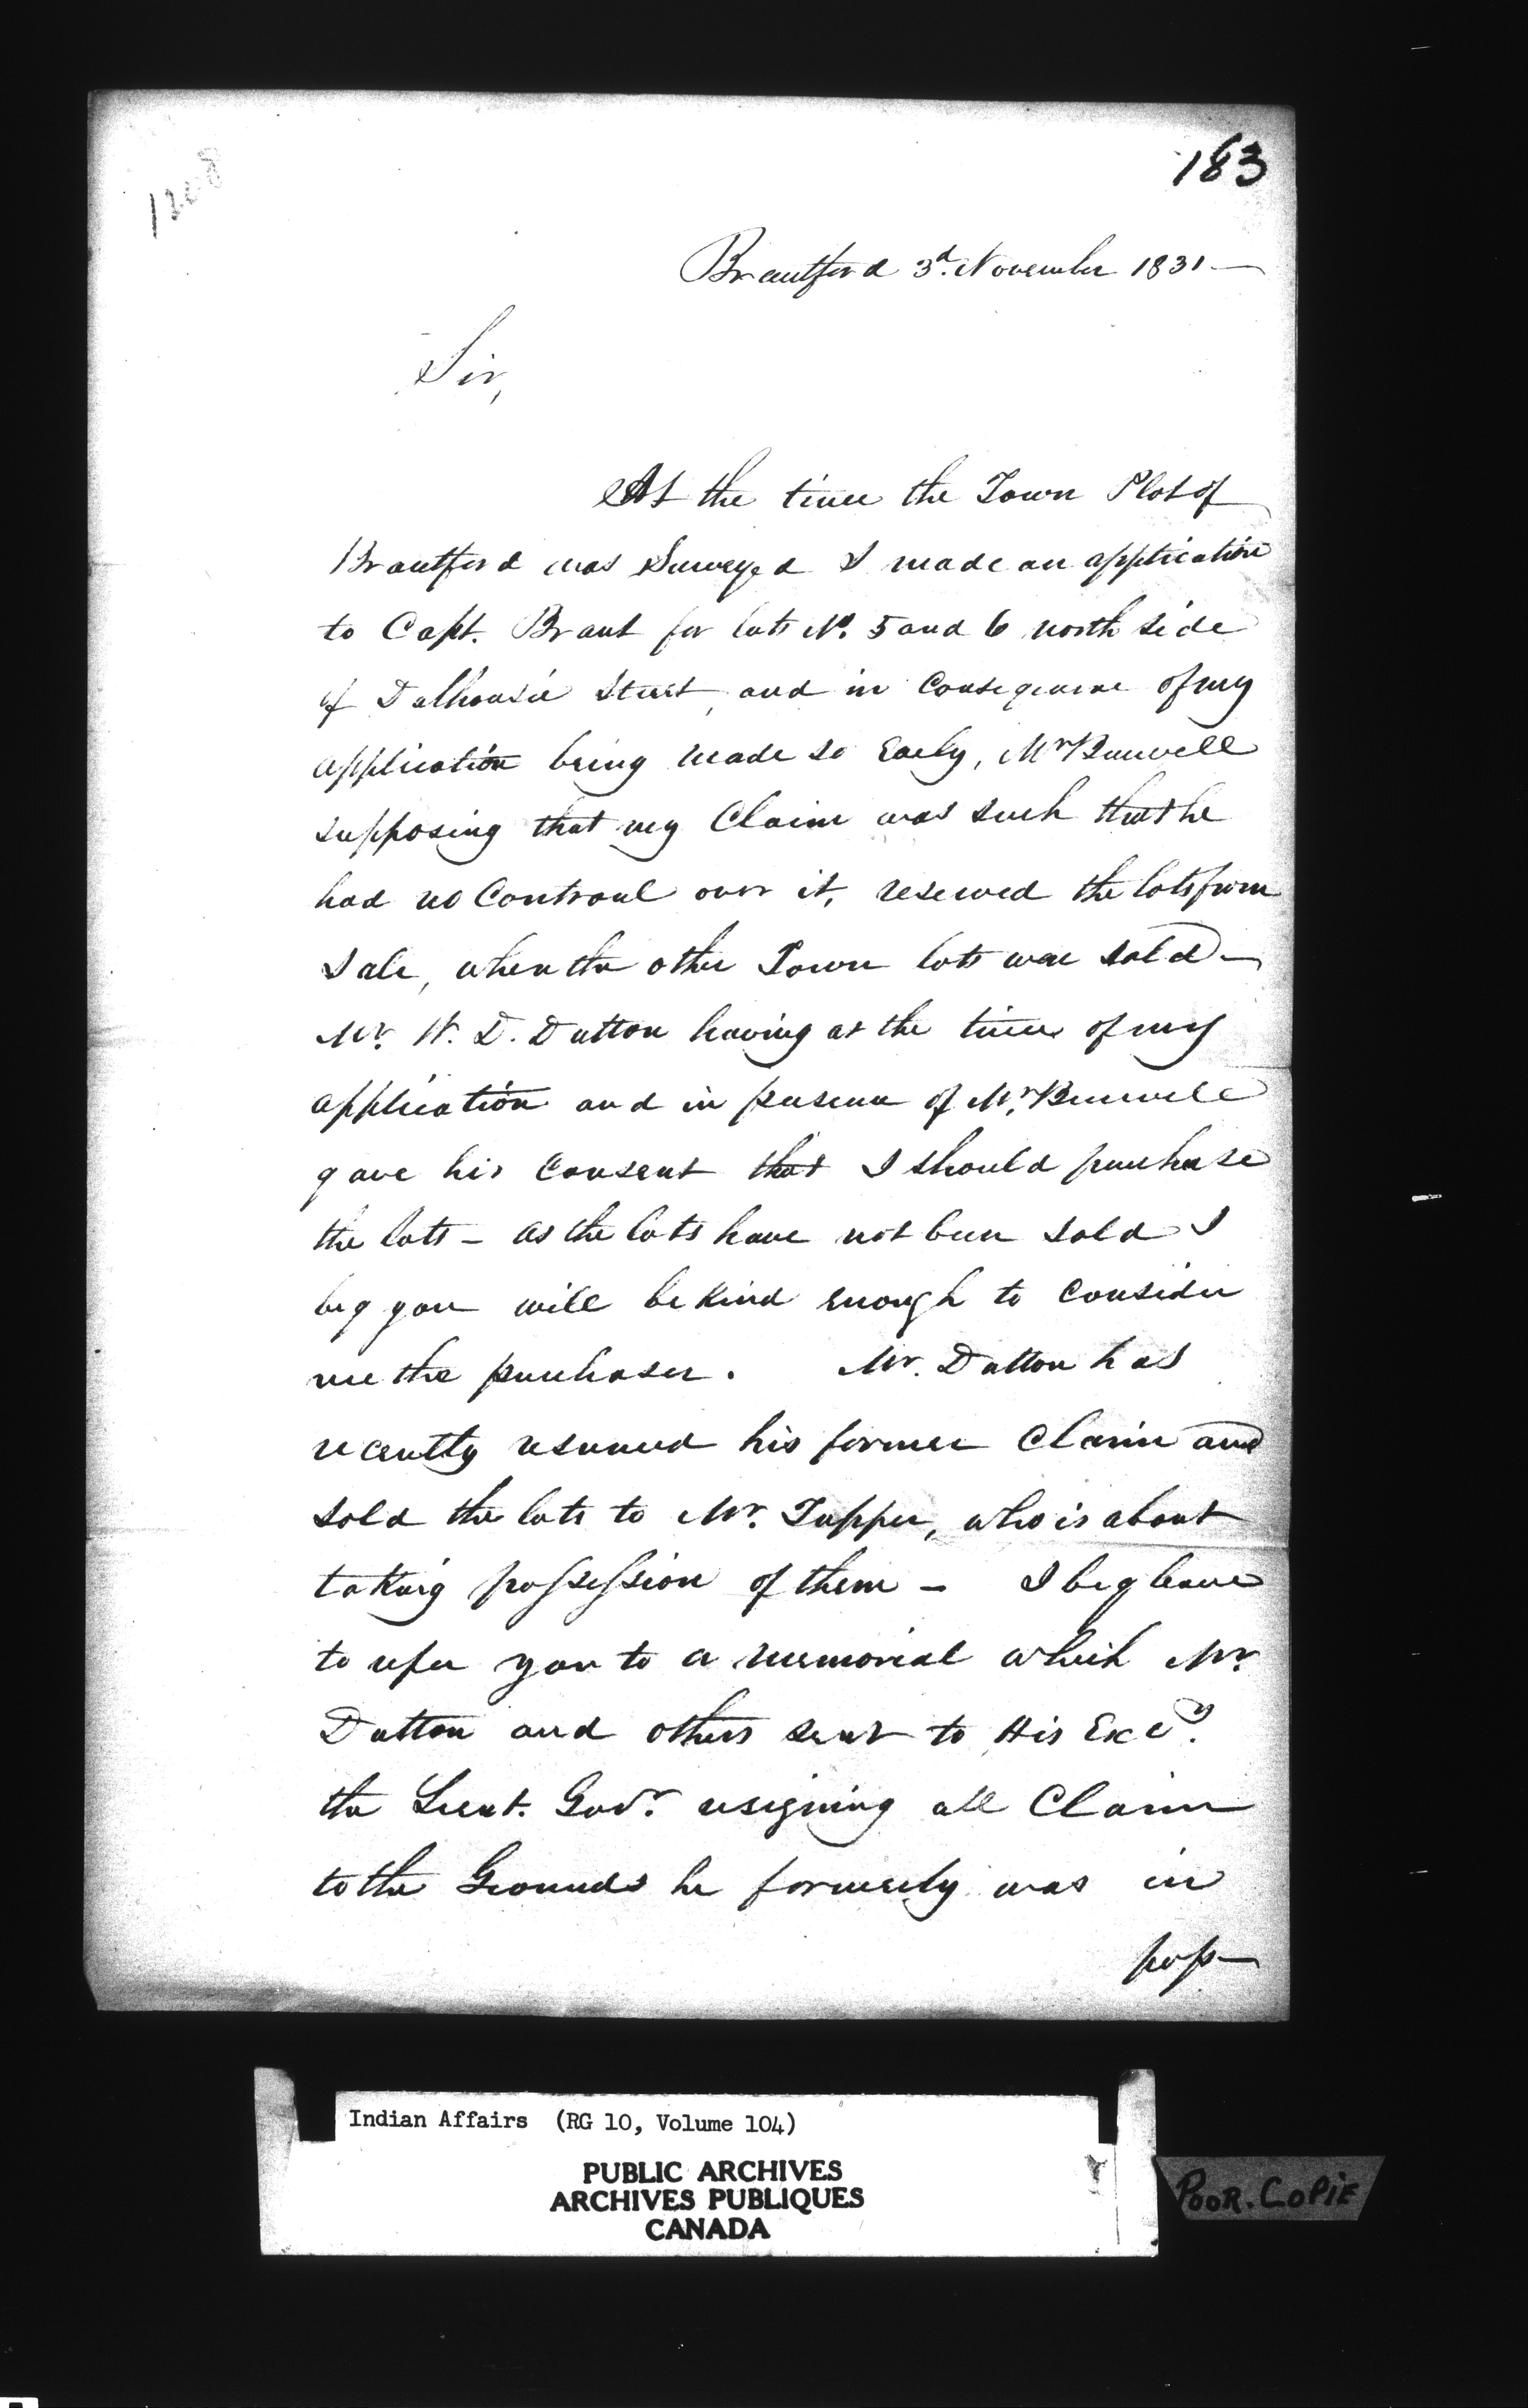 183
1208
Brantford 3d. November 1831 —
Sir,
At the time the Town Plot of
Brantford was Surveyed I made an application
to Capt. Brant for lots No. 5 and 6 north side
of Dalhousie Street, and in Consequence of my
application being made so Early, Mr Burwell
supposing that my Claim was such that he
had no Controul over it, reserved the lots from
Sale, when the other Town lots were sold —
Mr. W. D. Dutton having at the time of my
application and in presence of Mr. Burwell
gave his Consent that I should purchase
the lots - as the lots have not been sold I
beg you will be kind enough to Consider
me the purchaser. Mr. Dutton has
recently resumed his former Claim and
sold the lots to Mr. Tupper, who is about
taking possession of them - I beg leave
to refer you to a memorial which Mr.
Dutton and others sent to His Excy.
the Lieut. Govr. resigning all Claim
to the Grounds he formerly was in
poss—
Indian Affairs (RG 10, Volume 104)
PUBLIC ARCHIVES
ARCHIVES PUBLIQUES
CANADA
POOR. COPIE